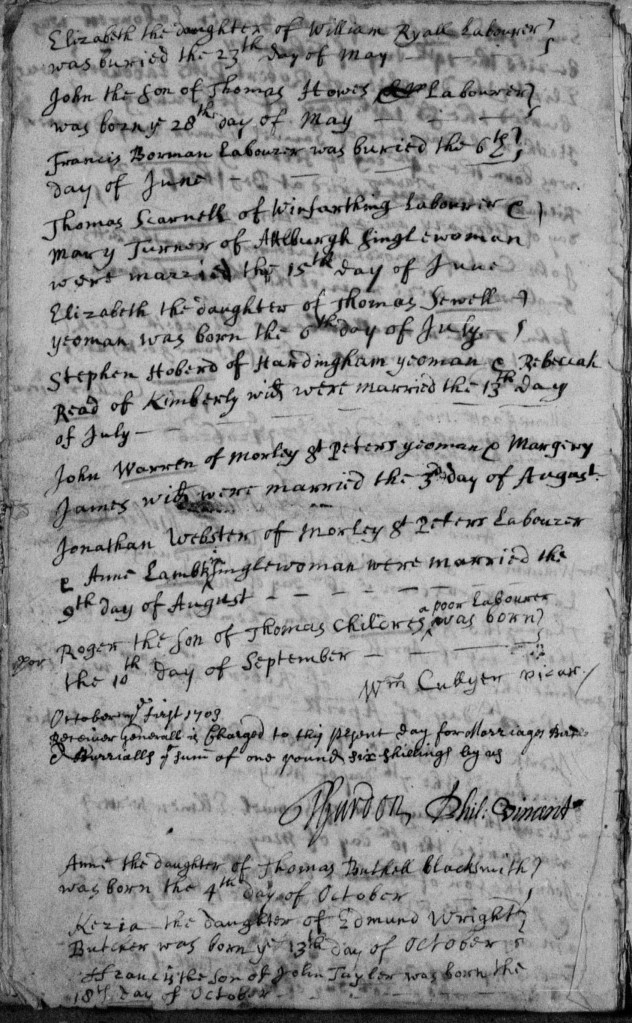 Elizabeth the daughter of William Ryall Labourer
was buried the 23th day of May
John the Son of Thomas Howes Labourer
was born ye 28th day of May
Francis Borman Labourer was buried the 6th
day of June
Thomas Scarnell of Winfarthing Labourer &
Mary Turner of Attlburgh singlewoman
were married the 15th day of June
Elizabeth the daughter of Thomas Sewell
yeoman was born the 6th day of July
Stephen Hoberd of Hardingham yeoman & Rebeccah
Read of Kimberly wid were married the 13th day
of July
John Warren of Morley St Peters yeoman & Margery
James wid were married the 3d day of August
Jonathan Webster of Morley St Peters Labourer
& Anne Lamb singlewoman were married the
9th day of August
a poor Labourer
Roger the Son of Thomas Childres was born
por
the 10th day of September
Wm Cullyer vicar
October ye first 1703
Receiver Generall is Charged to this psent day for Marriages
& Burrialls ye sum of one pound six shillings by us
Phil: Vincent
Anne the daughter of Thomas Buthell blacksmith
was born the 4th day of October
Kezia the daughter of Edmund Wright
Butcher was born ye 13th day of October
Francis the Son of John Tayler was born the
18th day of October